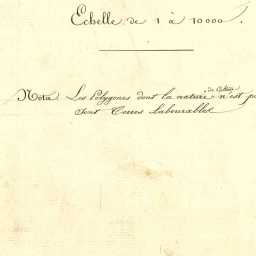 Echelle de 1 à 10000.
Nota Les Polygones dont la nature de Culture n'est p
sont Terres labourables